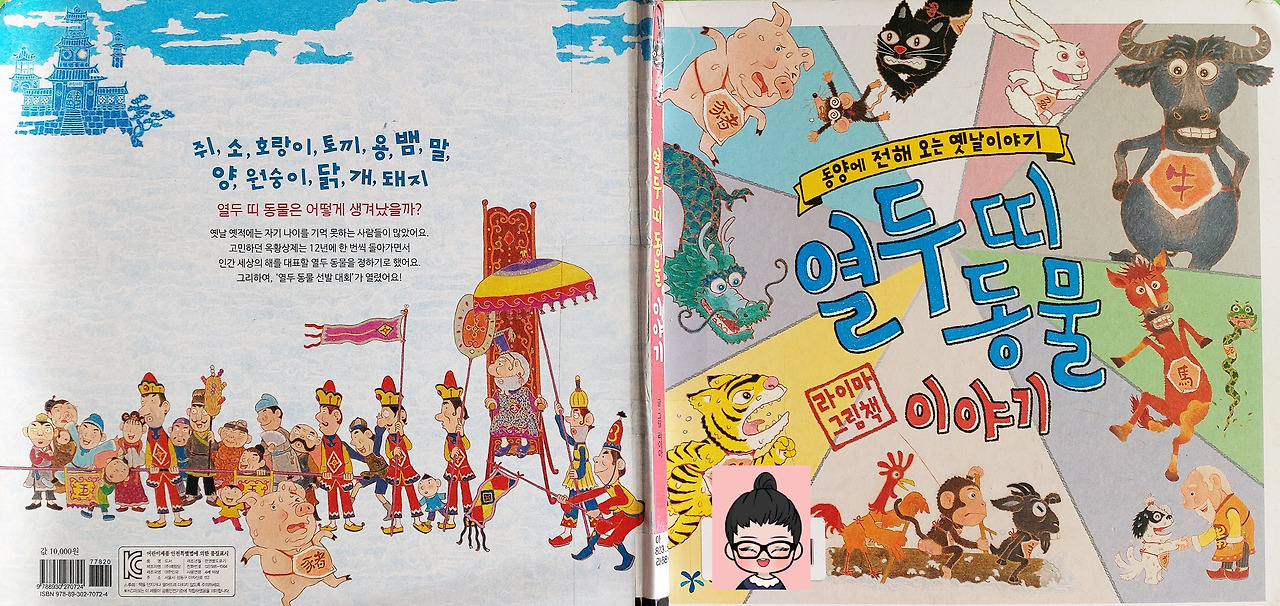 쥐, 소, 호랑이, 토끼, 용, 뱀, 말,
양, 원숭이, 닭, 개, 돼지
열두 띠 동물은 어떻게 생겨났을까?
옛날 옛적에는 자기 나이를 기억 못하는 사람들이 많았어요.
고민하던 옥황상제는 12년에 한 번씩 돌아가면서
인간 세상의 해를 대표할 열두 동물을 정하기로 했어요.
그리하여, '열두 동물 선발 대회'가 열렸어요!
家猪
값 10,000원
77820
9 788930 270724
ISBN 978-89-302-7072-4
어린이제품 안전특별법에 의한 품질표시
열두 띠 동물 이야기
家猪
牛
동양에 전해 오는 옛날이야기
열두 띠
동물
이야기
라이마
그림책
馬